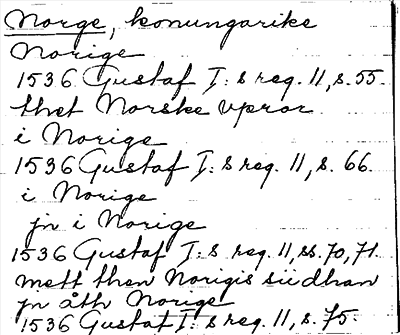 Norge, konungarike
Norige
1536 Gustaf I:s reg. 11, s. 55.
thet Norske vpror
i Norige
1536 Gustaf I:s reg. 11, s. 66.
i Norige
jn i Norige
1536 Gustaf I:s reg. 11, ss. 70, 71.
mett then Norigis siidhan
jn åth Norige
1536 Gustaf I:s reg. 11, s. 75.